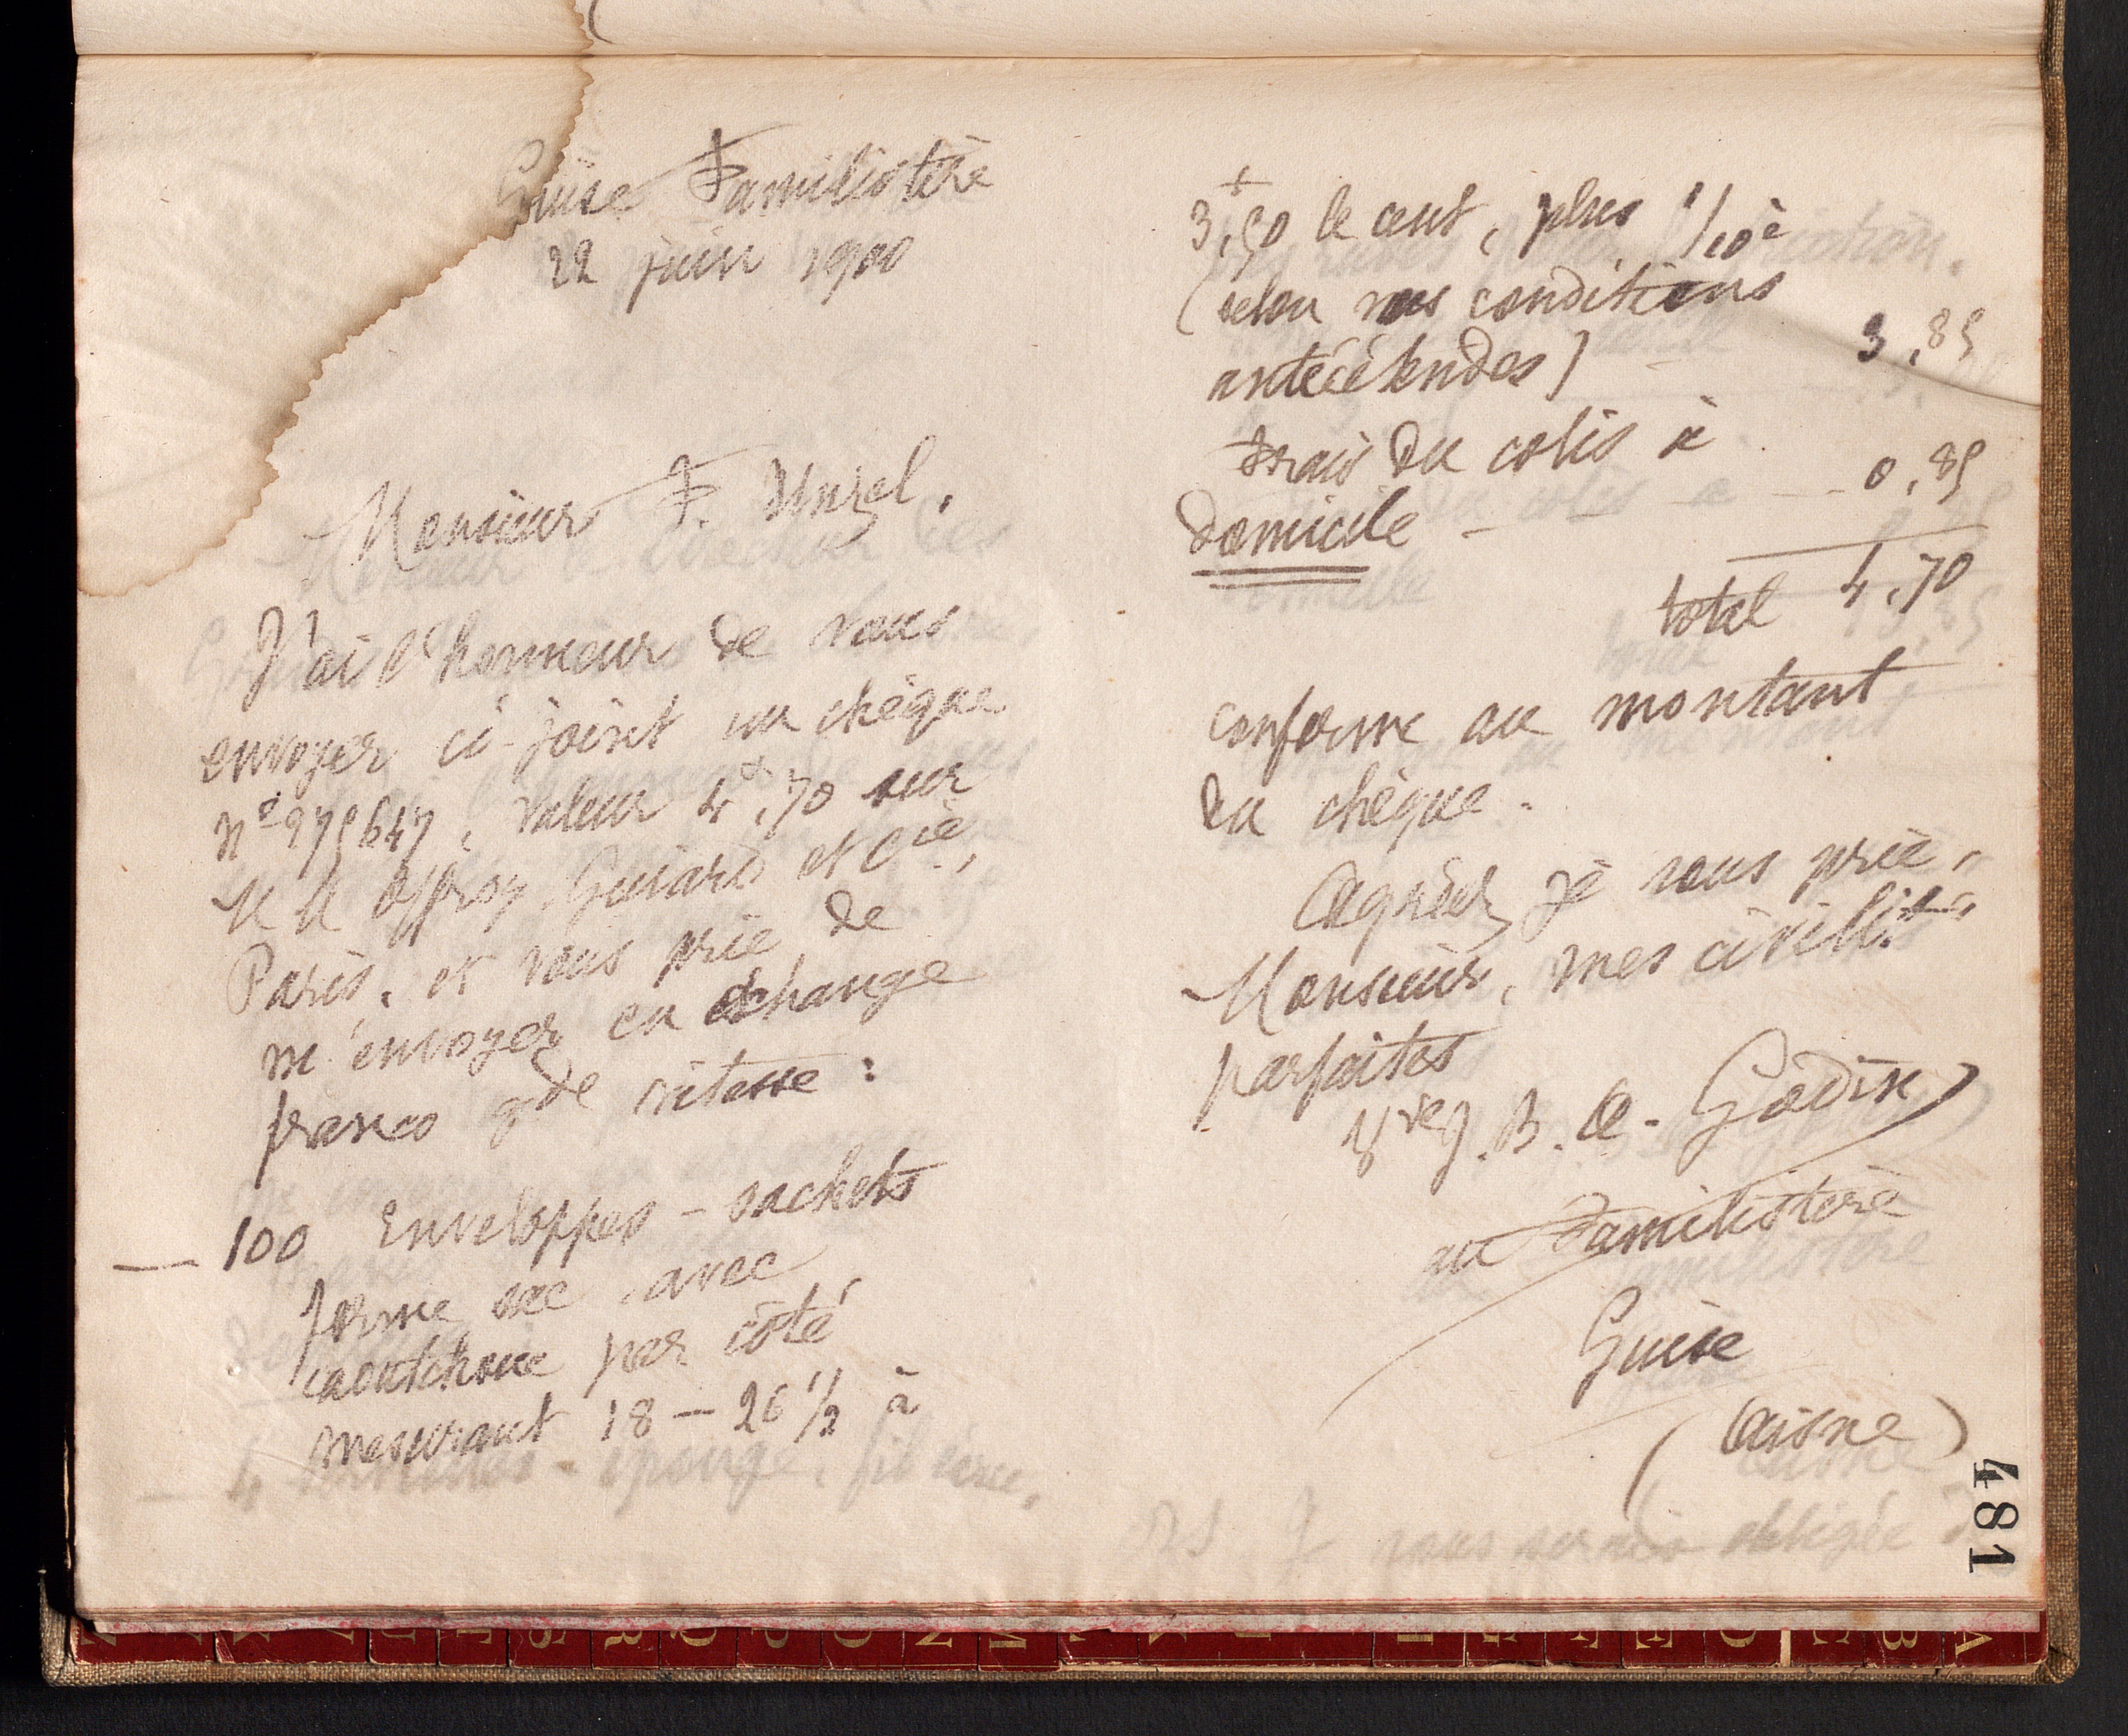 Guise Familistère
22 juin 1900
Monsieur F. Unzel.
J'ai l'honneur de vous
envoyer ci-joint un chèque
N° 975647, valeur 4f,70 sur
M M Offroy, Guiard et Cie,
Paris, et vous prie de
m'envoyer en échange
franco gde vitesse :
— 100 Enveloppes-sachets
forme sac, avec
caoutchouc par côté
mesurant 18 — 26 1/2 à
3f,50 le cent, plus 1/10e
(selon vos conditions
antécédendes) 3,85
Frais du colis à
domicile — — — 0,85
total 4,70
conforme au montant
du chèque.
Agréez, je vous prie,
Monsieur, mes civilités
parfaites
Vve J. B. A. Godin
au Familistère
Guise
(Aisne)
481
A
B